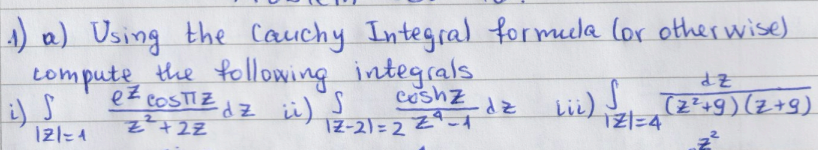 1) a) Using the Cauchy Integral formula (or otherwise)
compute the following integrals
i) ∫_{|z|=1} (e^z cosπz)/(z^2+2z) dz ii) ∫_{|z-2|=2} (coshz)/(z^4-1) dz iii) ∫_{|z|=4} dz/((z^2+9)(z+9))
z^2